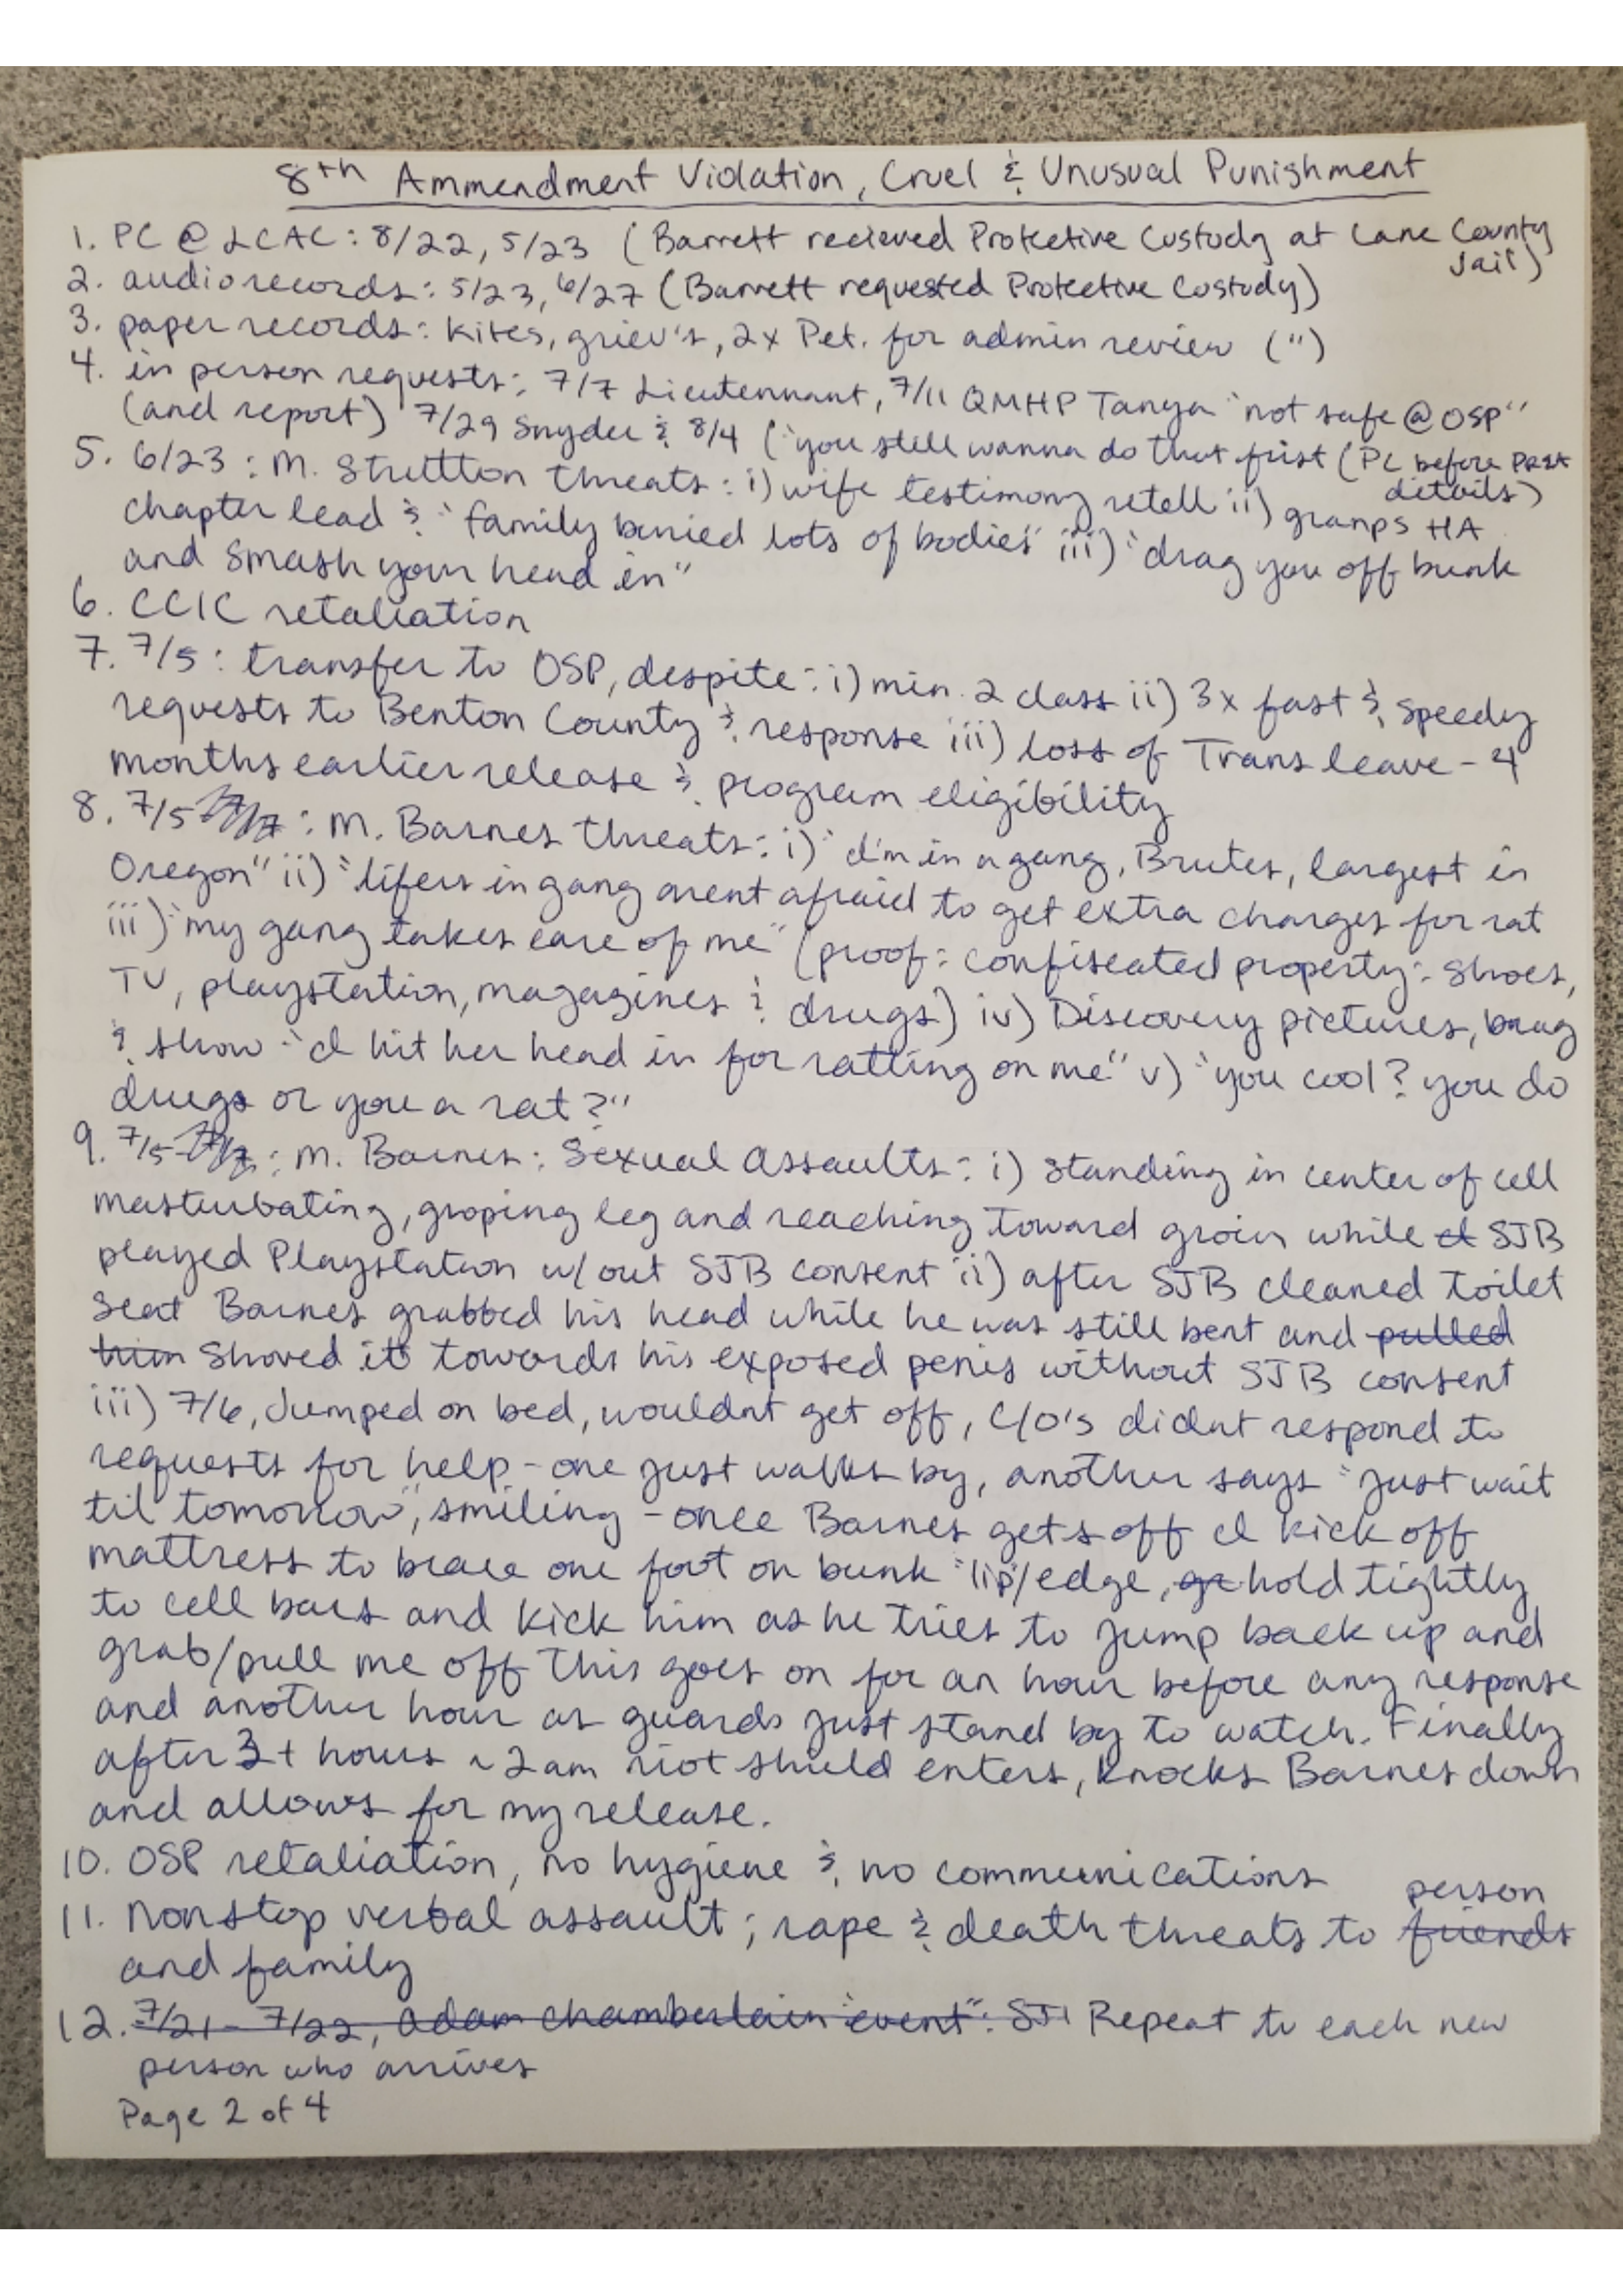 8th Ammendment Violation, Cruel & Unusual Punishment
1. PC @ LCAC: 8/22, 5/23 (Barrett recieved Protective Custody at Lane County
Jail)
2. audio records: 5/23, 6/27 (Barrett requested Protective Custody)
3. paper records: kites, griev's, 2x Pet. for admin review (")
4. in person requests: 7/7 Lieutennant, 7/11 QMHP Tanya "not safe @ OSP"
(and report) 7/29 Snyder & 8/4 ("you still wanna do that first (PC before
details)
5. 6/23: M. Stutton threats: i) wife testimony retell ii) gramps HA
chapter lead & "family buried lots of bodies" iii) "drag you off bunk
and smash your head in"
6. CCIC retaliation
7. 7/5: transfer to OSP, despite: i) min. 2 class ii) 3x fast & speedy
requests to Benton County & response iii) loss of Trans leave - 4
months earlier release & program eligibility
8. 7/5: M. Barnes threats: i) "I'm in a gang, Brutes, largest in
Oregon" ii) "lifers in gang arent afraid to get extra charges for rat
iii) "my gang takes care of me" (proof: confiscated property: shoes,
TV, playstation, magazines & drugs) iv) Discovery pictures, brag
& show "I hit her head in for ratting on me" v) "you cool? you do
drugs or you a rat?"
9. 7/5: M. Barnes: Sexual Assaults: i) standing in center of cell
masturbating, groping leg and reaching toward groin while SJB
played Playstation w/out SJB consent ii) after SJB cleaned toilet
seat Barnes grabbed his head while he was still bent and pulled
him shoved it towards his exposed penis without SJB consent
iii) 7/6, Jumped on bed, wouldnt get off, C/O's didnt respond to
requests for help - one just walks by, another says "just wait
til tomorrow", smiling - once Barnes gets off I kick off
mattress to brace one foot on bunk "lip"/edge, hold tightly
to cell bars and kick him as he tries to jump back up and
grab/pull me off This goes on for an hour before any response
and another hour as guards just stand by to watch. Finally
after 3+ hours ~2am riot shield enters, knocks Barnes down
and allows for my release.
10. OSP retaliation, no hygiene & no communications
11. Nonstop verbal assault; rape & death threats to friends person
and family
12. 7/21 - 7/22, Adam Chamberlain "event": SJ Repeat to each new
person who arrives
Page 2 of 4